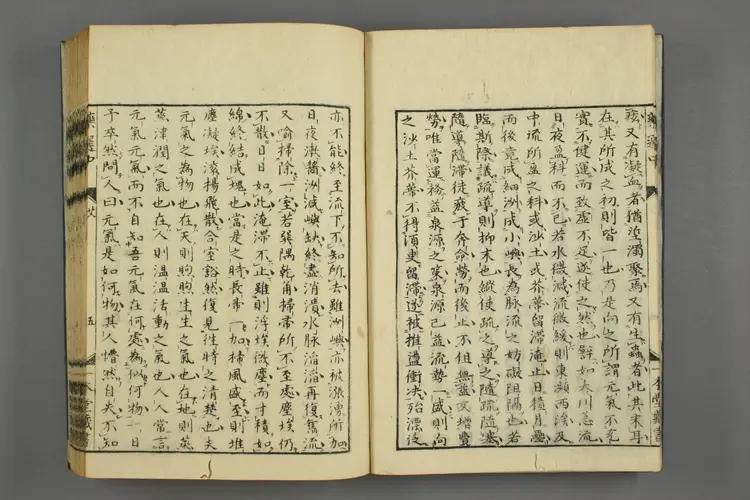 痃又有凝血者猶塗濁聚焉又有生蟲者此其末耳
在其所成之初則皆一也乃是向之所謂元氣不充
實不健運而致虛不足遂使之然也鮮如大川急流
日夜盈科而不已若水微減流微緩則東瀕西涘及
中流所盈之科或沙土或芥蒂留滯淹止日積月疊
而後竟成細洲成小嶼長為脉流之妨礙阻隔也若
臨斯際議疏導則抑末也縱使疏之導之隨疏隨塞
隨導隨滯徒疲于奔命勞而後止不但無益又增豐
勢唯當運粉益泉源之策泉源已益流勢一盛則向
之沙土芥蒂不得須臾留滯遂被推盪衝决殆漂泛
亦不能終至流下不知所去雖洲嶼亦被漲湧所加
日夜漱齧洲減嶼缺終盡消潰水脉滔滔再復舊流
又喻掃除一室若巽隅乾角掃帚所不至處塵埃仍
不散日日如此淹滯不止雖則浮埃微塵而寸積如
綿終結成塊也當是之時長帚一加掃風盛至則堆
塵凝埃滾揚飛散合室谿然復見往時之清楚也夫
元氣之為物也在天則煦煦生生之氣也在地則蒸
蒸津潤之氣也在人則溫溫活動之氣也人人常言
元氣元氣而不自知吾元氣在何處為似何物一日
予卒然問人曰元氣是如何物其人懵然自失不知
藥選中
五